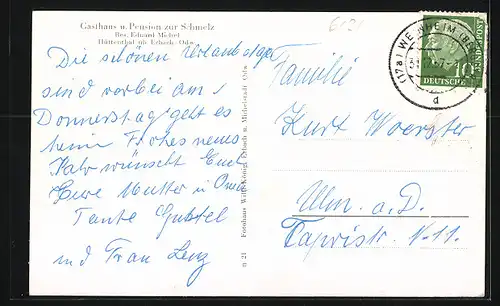 Gasthaus u. Pension zur Schmelz
Bes. Eduard Michel
Hüttenthal üb. Erbach Odw.
Die schönen Urlaubstage
sind vorbei am
Donnerstag geht es
heim Frohes neues
Jahr wünscht Euch
Eure Mutter u Oma
Tante Gustel
und Frau Lenz
Fotohaus Willi König, Erbach u. Michelstadt Odw.
n 21
(17a) WEINHEIM
d
DEUTSCHE BUNDESPOST
10
Familie
Kurt Woerster
Ulm a. D.
Tapvistr. N. 11.